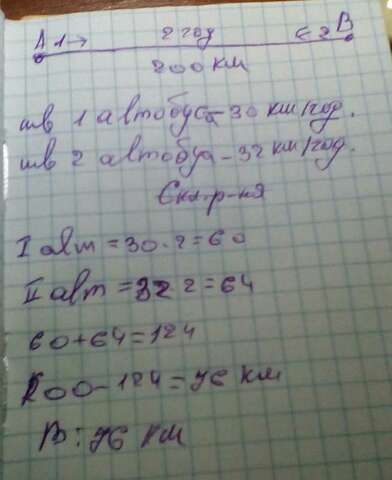 А 1→ 2 год ←2 В
200 км
шв 1 автобуса – 30 км/год.
шв 2 автобуа – 32 км/год.
I авт = 30·2=60
II авт = 32 2=64
60+64=124
200–124=76 км
В: 76 км